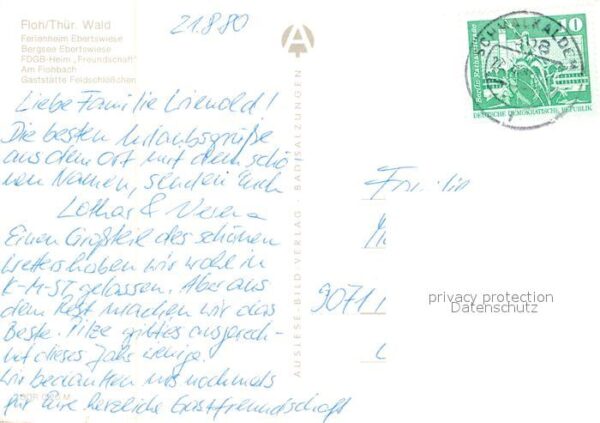 Floh/Thür. Wald
Ferienheim Ebertswiese
Bergsee Ebertswiese
FDGB-Heim „Freundschaft"
Am Flohbach
Gaststätte Feldschlößchen
21.8.80
Liebe Familie
Die besten Urlaubsgrüße
aus dem Ort mit dem schö
nen Namen, senden Euch
Lothar &
Einen Großteil des schönen
Wetters haben wir wohl in
K-M-St gelassen. Aber aus
dem Rest machen wir das
Beste. Pilze gibt es ausgerech-
net dieses Jahr wenige.
Wir bedankten uns nochmals
für Eure herzliche Gastfreundschaft
AUSLESE-BILD-VERLAG · BAD SALZUNGEN
SCHMALKALDEN
10
DEUTSCHE DEMOKRATISCHE REPUBLIK
Familie
9071
privacy protection
Datenschutz